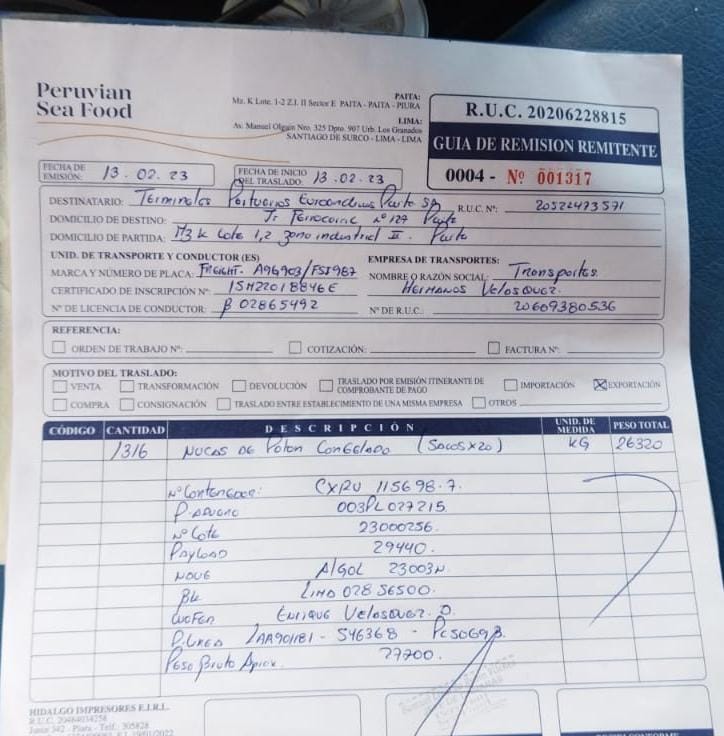 Peruvian
Sea Food
PAITA:
Mz. K Lote. 1-2 Z.I. II Sector E PAITA - PAITA - PIURA
LIMA:
Av. Manuel Olguin Nro. 325 Dpto. 907 Urb. Los Granados
SANTIAGO DE SURCO - LIMA - LIMA
R.U.C. 20206228815
GUIA DE REMISION REMITENTE
0004 - Nº 001317
FECHA DE EMISIÓN: 13.02.23
FECHA DE INICIO DEL TRASLADO: 13.02.23
DESTINATARIO: Terminales Portuarios Euroandinos Paita SA R.U.C. Nº: 20522473571
DOMICILIO DE DESTINO: Jr Ferrocarril nº 127 Paita
DOMICILIO DE PARTIDA: Mz K Lote 1,2 zona industrial II. Paita
UNID. DE TRANSPORTE Y CONDUCTOR (ES)
MARCA Y NÚMERO DE PLACA: FREIGHT- A9G903/FSI987
CERTIFICADO DE INSCRIPCIÓN Nº: 15M22018846E
Nº DE LICENCIA DE CONDUCTOR: B 02865492
EMPRESA DE TRANSPORTES:
NOMBRE O RAZÓN SOCIAL: Transportes
Hermanos Velasquez.
Nº DE R.U.C.: 20609380536
REFERENCIA:
ORDEN DE TRABAJO Nº: COTIZACIÓN: FACTURA Nº:
MOTIVO DEL TRASLADO:
VENTA TRANSFORMACIÓN DEVOLUCIÓN TRASLADO POR EMISIÓN ITINERANTE DE COMPROBANTE DE PAGO IMPORTACIÓN EXPORTACIÓN
COMPRA CONSIGNACIÓN TRASLADO ENTRE ESTABLECIMIENTO DE UNA MISMA EMPRESA OTROS
CÓDIGO CANTIDAD DESCRIPCIÓN UNID. DE MEDIDA PESO TOTAL
1316 NUCAS DE POTA CONGELADO (SACOS X 20) KG 26320
Nº Contenedor: CXRU 115698-7.
P. ADUANA 003PL027215.
Nº Lote 23000256
Payload 29440.
NAVE AlGOL 23003N
BK LIMA 028 56500.
CHOFER ENRIQUE VELASQUEZ O.
P. LINEA
Peso Bruto Aprox. 27700.
HIDALGO IMPRESORES E.I.R.L.
R.U.C. 20484034258
Junin 342 - Piura - Telf.: 305828